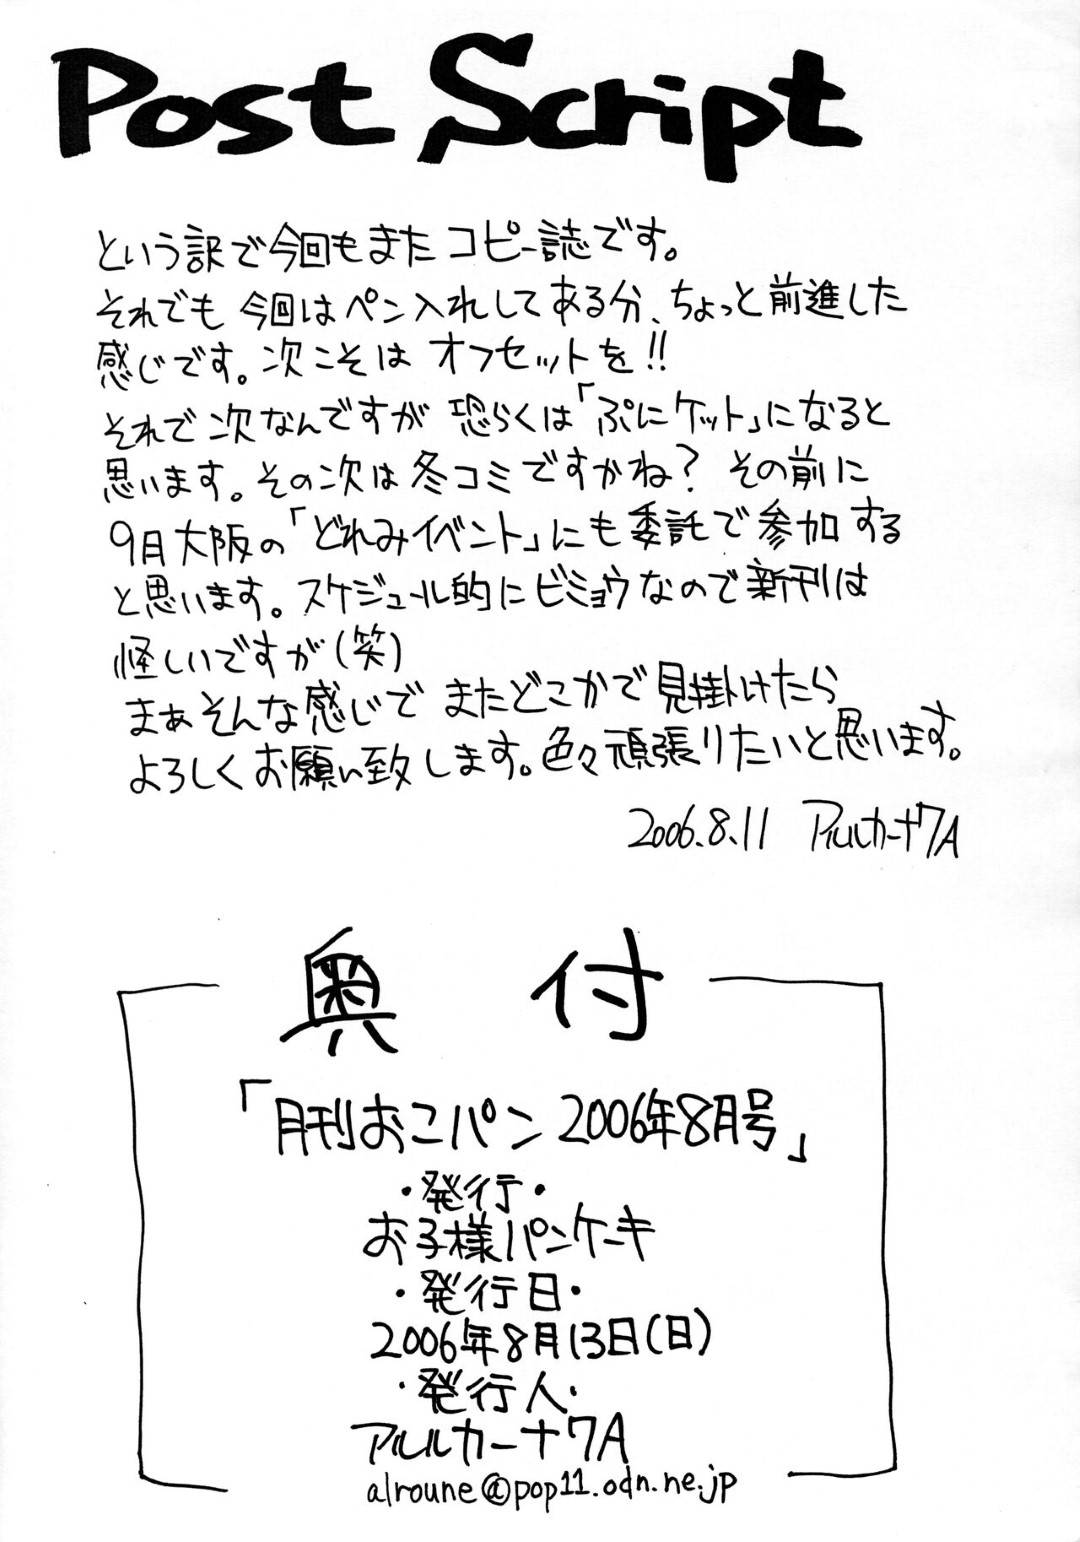 Post Script
という訳で今回もまたコピー誌です。
それでも今回はペン入れしてある分、ちょっと前進した
感じです。次こそはオフセットを!!
それで次なんですが恐らくは「ぷにケット」になると
思います。その次は冬コミですかね？その前に
9月大阪の「どれみイベント」にも委託で参加する
と思います。スケジュール的にビミョウなので新刊は
怪しいですが(笑)
まぁそんな感じでまたどこかで見掛けたら
よろしくお願い致します。色々頑張りたいと思います。
2006.8.11 アルルカーナ7A
奥付
「月刊おこパン 2006年8月号」
・発行・
お子様パンケーキ
・発行日・
2006年8月13日(日)
・発行人・
アルルカーナ7A
alroune@pop11.odn.ne.jp